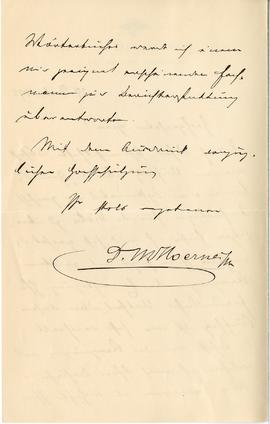 Wörterbuches werde ich einem
mir geeignet erscheinenden Fach-
mann zur Berichterstattung
überantworten.
Mit dem Ausdruck vorzüg-
licher Hochschätzung
Ihr stets ergebener
D. M Hoernes